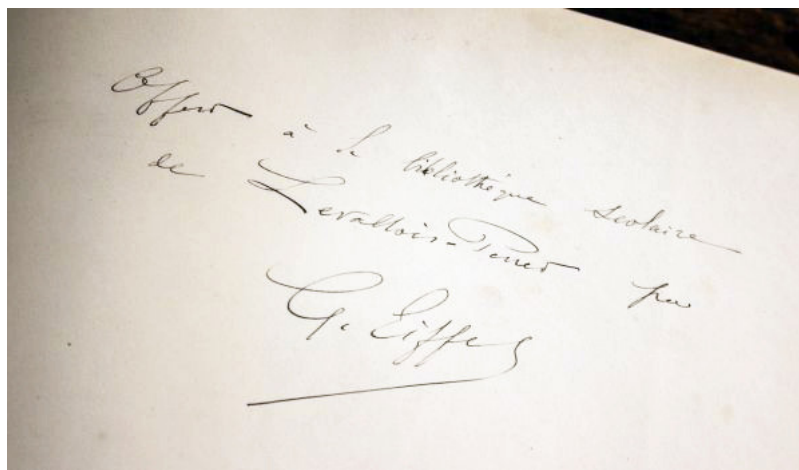 Offert à la bibliothèque scolaire
de Levallois-Perret par
G. Eiffel